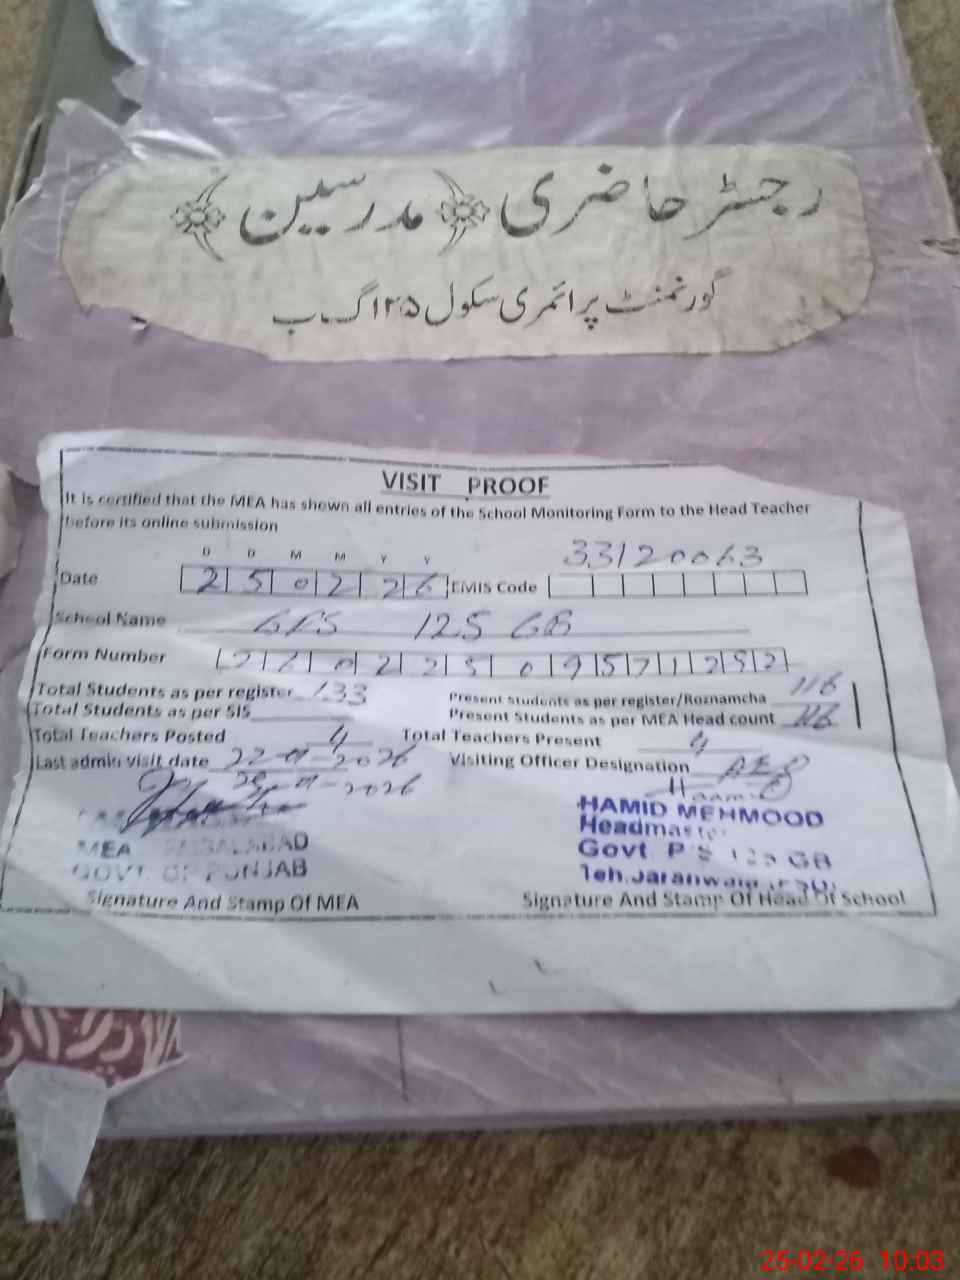 رجسٹر حاضری ﴿مدرسین﴾
گورنمنٹ پرائمری سکول ۱۲۵ گ ب
VISIT PROOF
It is certified that the MEA has shown all entries of the School Monitoring Form to the Head Teacher
before its online submission
D D M M Y Y
Date 2 5 0 2 2 6 EMIS Code 33120063
School Name GPS 125 GB
Form Number
Total Students as per register 133 Present Students as per register/Roznamcha 116
Total Students as per SIS Present Students as per MEA Head count 116
Total Teachers Posted 4 Total Teachers Present 4
Last admin visit date 22-01-2026 Visiting Officer Designation AEO
-2026
HAMID MEHMOOD
Headmaster
MEA FAISALABAD Govt. P/S 125 GB
GOVT. OF PUNJAB Teh. Jaranwala (FSD)
Signature And Stamp Of MEA Signature And Stamp Of Head Of School
25-02-26 10:03